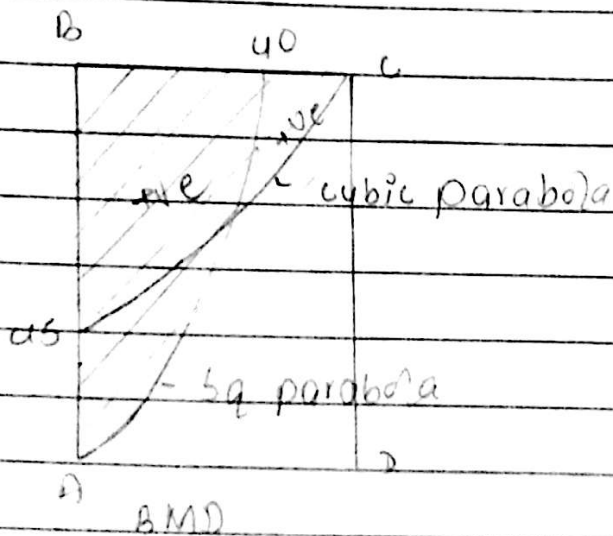 B 40 C
+ve
+ve cubic parabola
45
- Sq parabola
A D
BMD